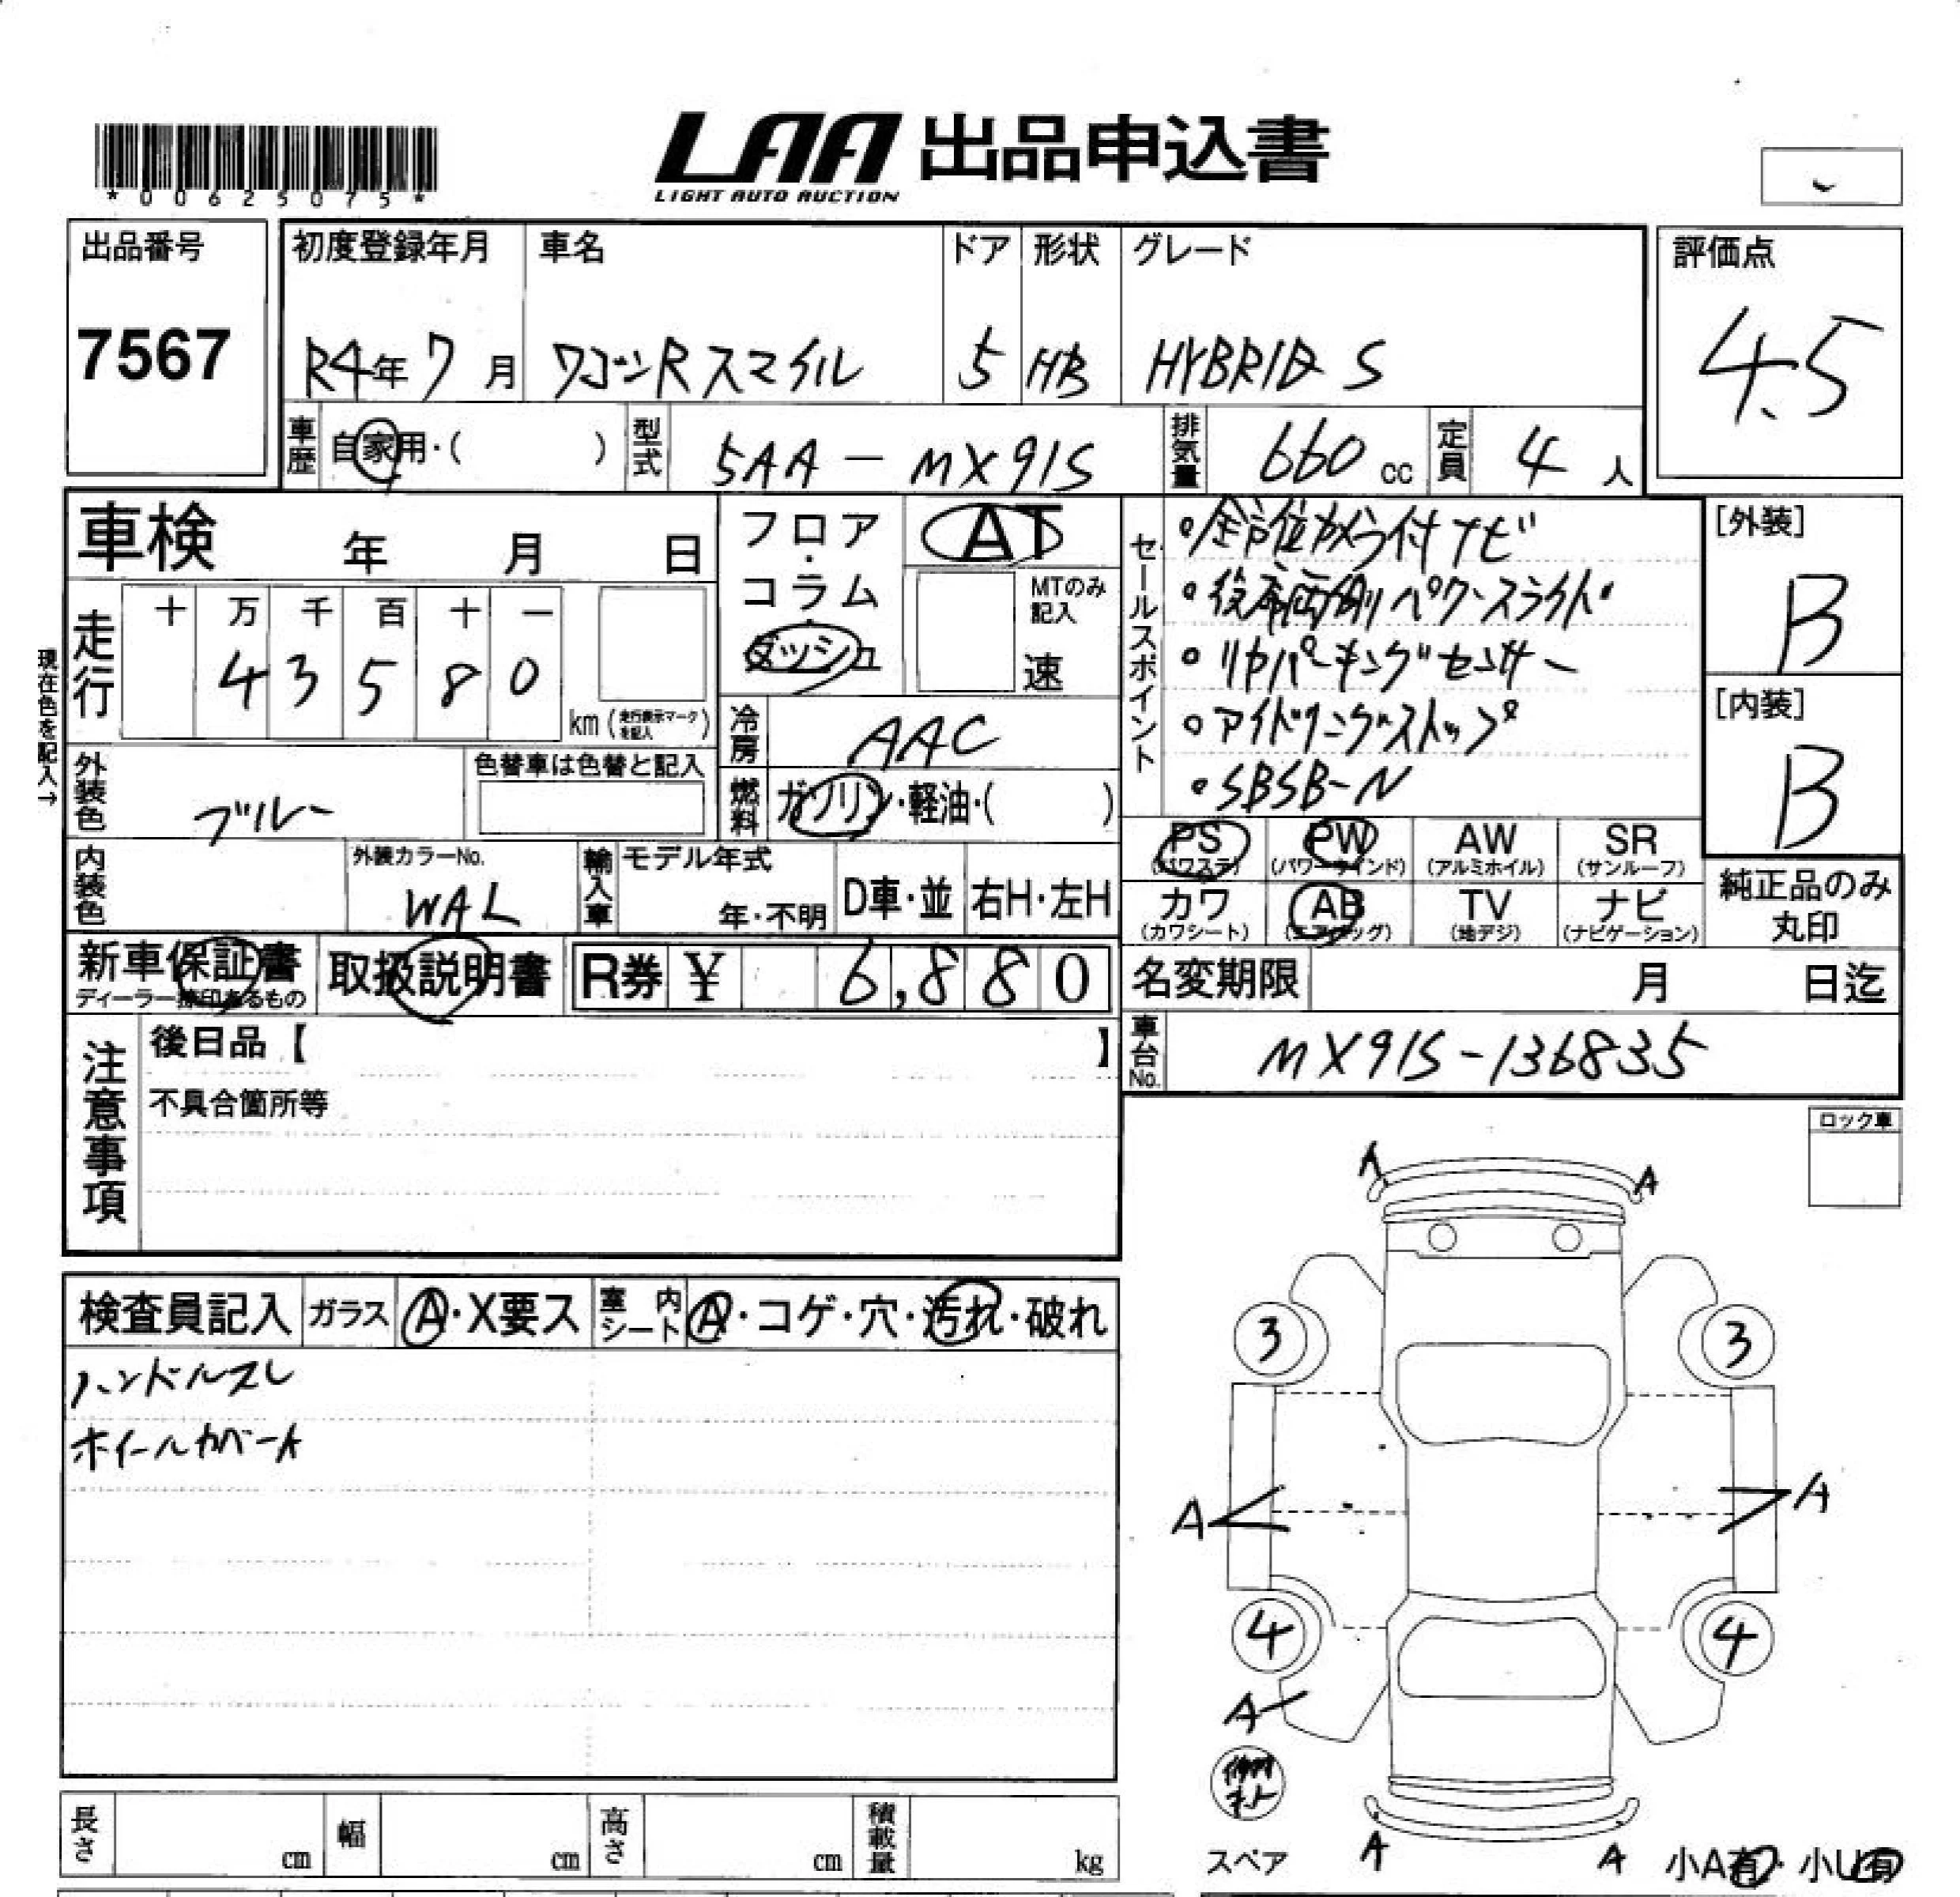 LAA 出品申込書
LIGHT AUTO AUCTION
*00625075*
出品番号
7567
初度登録年月
R4年7月
車名
ワゴンRスマイル
ドア
5
形状
HB
グレード
HYBRID S
評価点
4.5
車歴
自家用・( )
型式
5AA-MX91S
排気量
660cc
定員
4人
車検 年 月 日
フロア・コラム・ダッシュ
AT
MTのみ記入
速
現在色を記入→
走行
十万千百十一
43580
km(走行表示マークを記入)
冷房
AAC
外装色
ブルー
色替車は色替と記入
燃料
ガソリン・軽油・( )
内装色
外装カラーNo.
WAL
輸入車
モデル年式
年・不明
D車・並
右H・左H
セールスポイント
・全方位カメラ付ナビ
・後席両側パワースライド
・リヤパーキングセンサー
・アイドリングストップ
・SBSB-N
[外装]
B
[内装]
B
PS
(パワステ)
PW
(パワーウインド)
AW
(アルミホイル)
SR
(サンルーフ)
カワ
(カワシート)
AB
(エアバッグ)
TV
(地デジ)
ナビ
(ナビゲーション)
純正品のみ
丸印
新車保証書
ディーラー捺印あるもの
取扱説明書
R券 ¥ 6,880
名変期限 月 日迄
車台No.
MX91S-136835
注意事項
後日品【 】
不具合箇所等
ロック車
検査員記入
ガラス
A・X要ス
室内シート
A・コゲ・穴・汚れ・破れ
ハンドルスレ
ホイールカバーA
A
A
3
3
A
A
4
4
A
スペア
A
A
小A有・小U有
長さ cm
幅 cm
高さ cm
積載量 kg